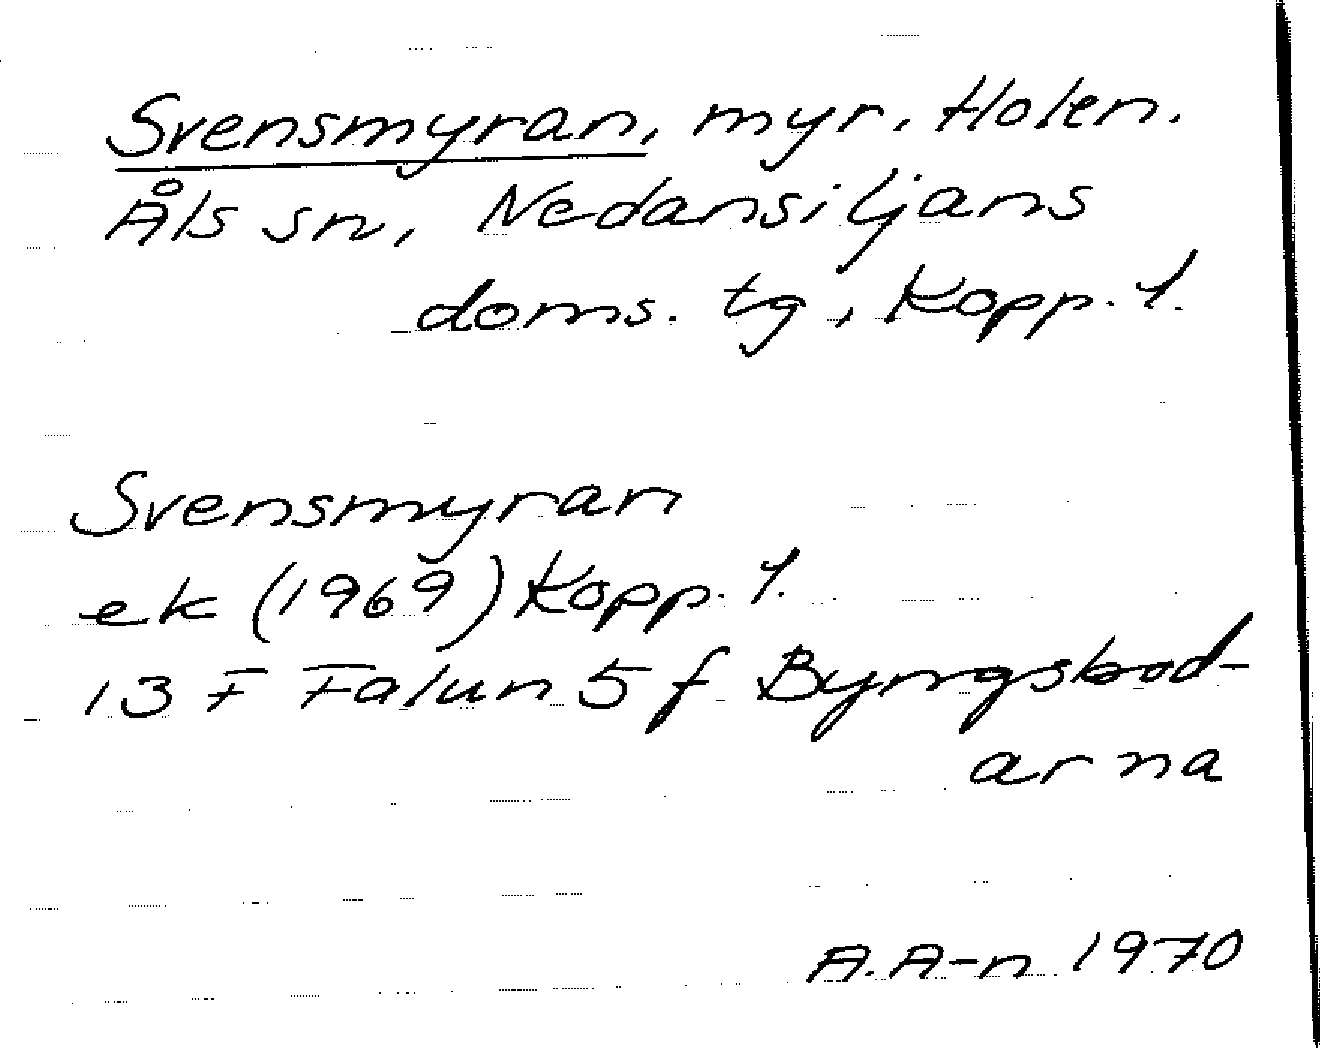 Svensmyran, myr. Holen.
Åls sn, Nedansiljans
doms. tg, Kopp. l.
Svensmyran
ek (1969) Kopp. l.
13 F Falun 5 f Byngsbod-
arna
A.A-n 1970